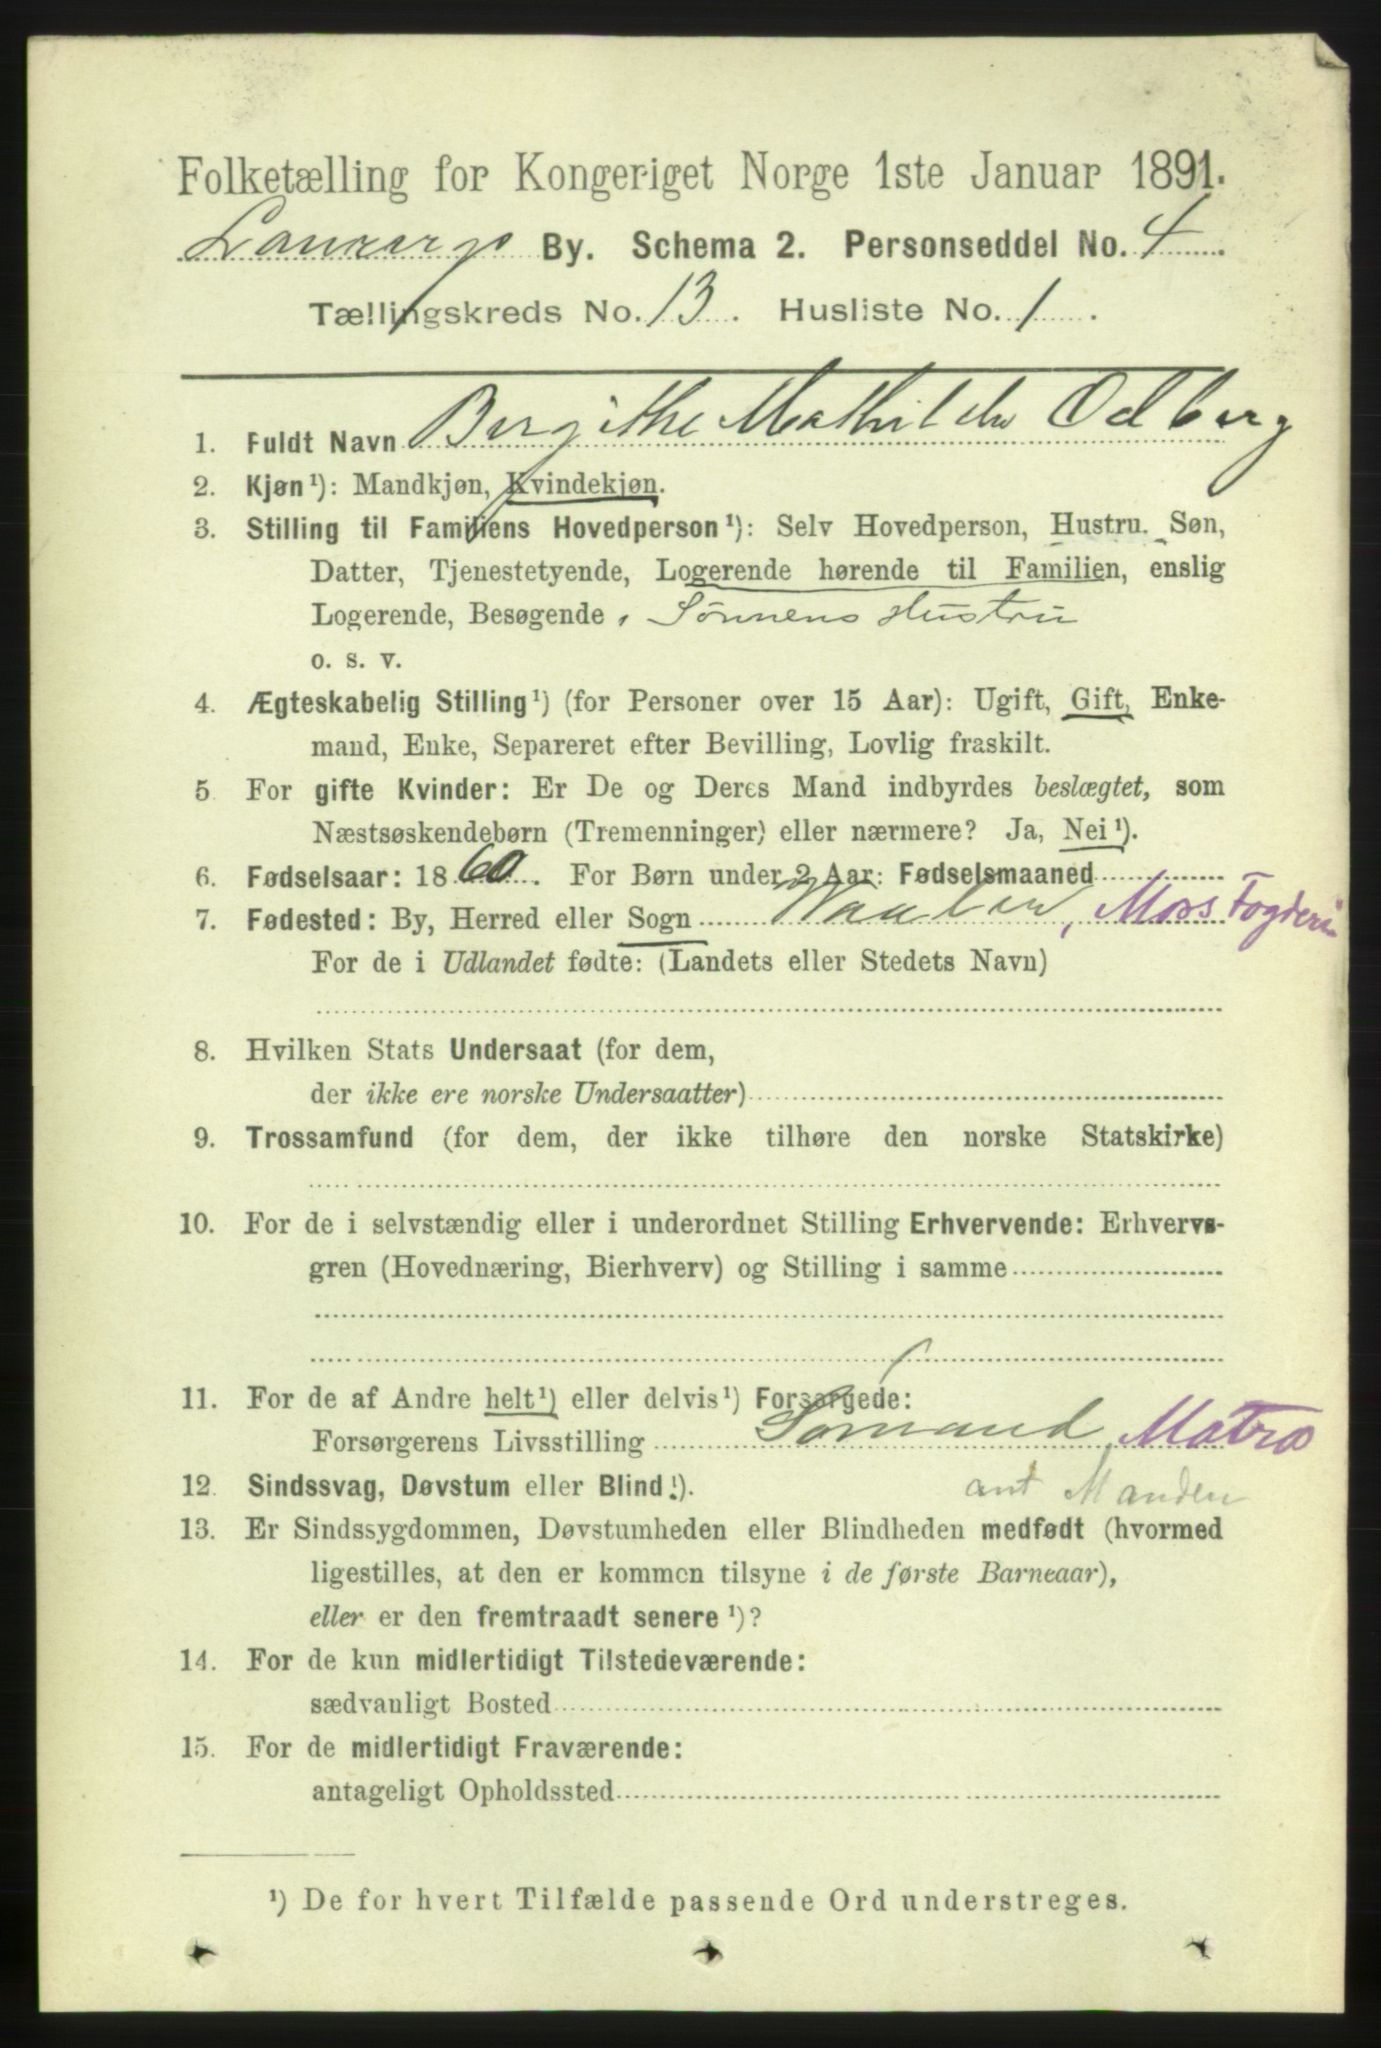 Folketælling for Kongeriget Norge 1ste Januar 1891.
By. Schema 2. Personseddel No. 4
Tællingskreds No. 13. Husliste No. 1.
1. Fuldt Navn Birgithe Mathilde Odberg
2. Kjøn¹): Mandkjøn, Kvindekjøn.
3. Stilling til Familiens Hovedperson¹): Selv Hovedperson, Hustru. Søn,
Datter, Tjenestetyende, Logerende hørende til Familien, enslig
Logerende, Besøgende, Sønnens Hustru
o. s. v.
4. Ægteskabelig Stilling¹) (for Personer over 15 Aar): Ugift, Gift, Enke-
mand, Enke, Separeret efter Bevilling, Lovlig fraskilt.
5 For gifte Kvinder: Er De og Deres Mand indbyrdes beslægtet, som
Næstsøskendebørn (Tremenninger) eller nærmere? Ja, Nei¹).
6. Fødselsaar: 1860. For Børn under 2 Aar: Fødselsmaaned
7. Fødested: By, Herred eller Sogn Vaaler, Moss Fogderi
For de i Udlandet fødte: (Landets eller Stedets Navn)
8. Hvilken Stats Undersaat (for dem,
der ikke ere norske Undersaatter)
9. Trossamfund (for dem, der ikke tilhøre den norske Statskirke)
10. For de i selvstændig eller i underordnet Stilling Erhvervende: Erhvervs-
gren (Hovednæring, Bierhverv) og Stilling i samme
11. For de af Andre helt¹) eller delvis¹) Forsørgede:
Forsørgerens Livsstilling Sømand, Matros
12. Sindssvag, Døvstum eller Blind¹).
ant Manden
13. Er Sindssygdommen, Døvstumheden eller Blindheden medfødt (hvormed
ligestilles, at den er kommen tilsyne i de første Barneaar),
eller er den fremtraadt senere¹)?
14. For de kun midlertidigt Tilstedeværende:
sædvanligt Bosted
15. For de midlertidigt Fraværende:
antageligt Opholdssted
¹) De for hvert Tilfælde passende Ord understreges.